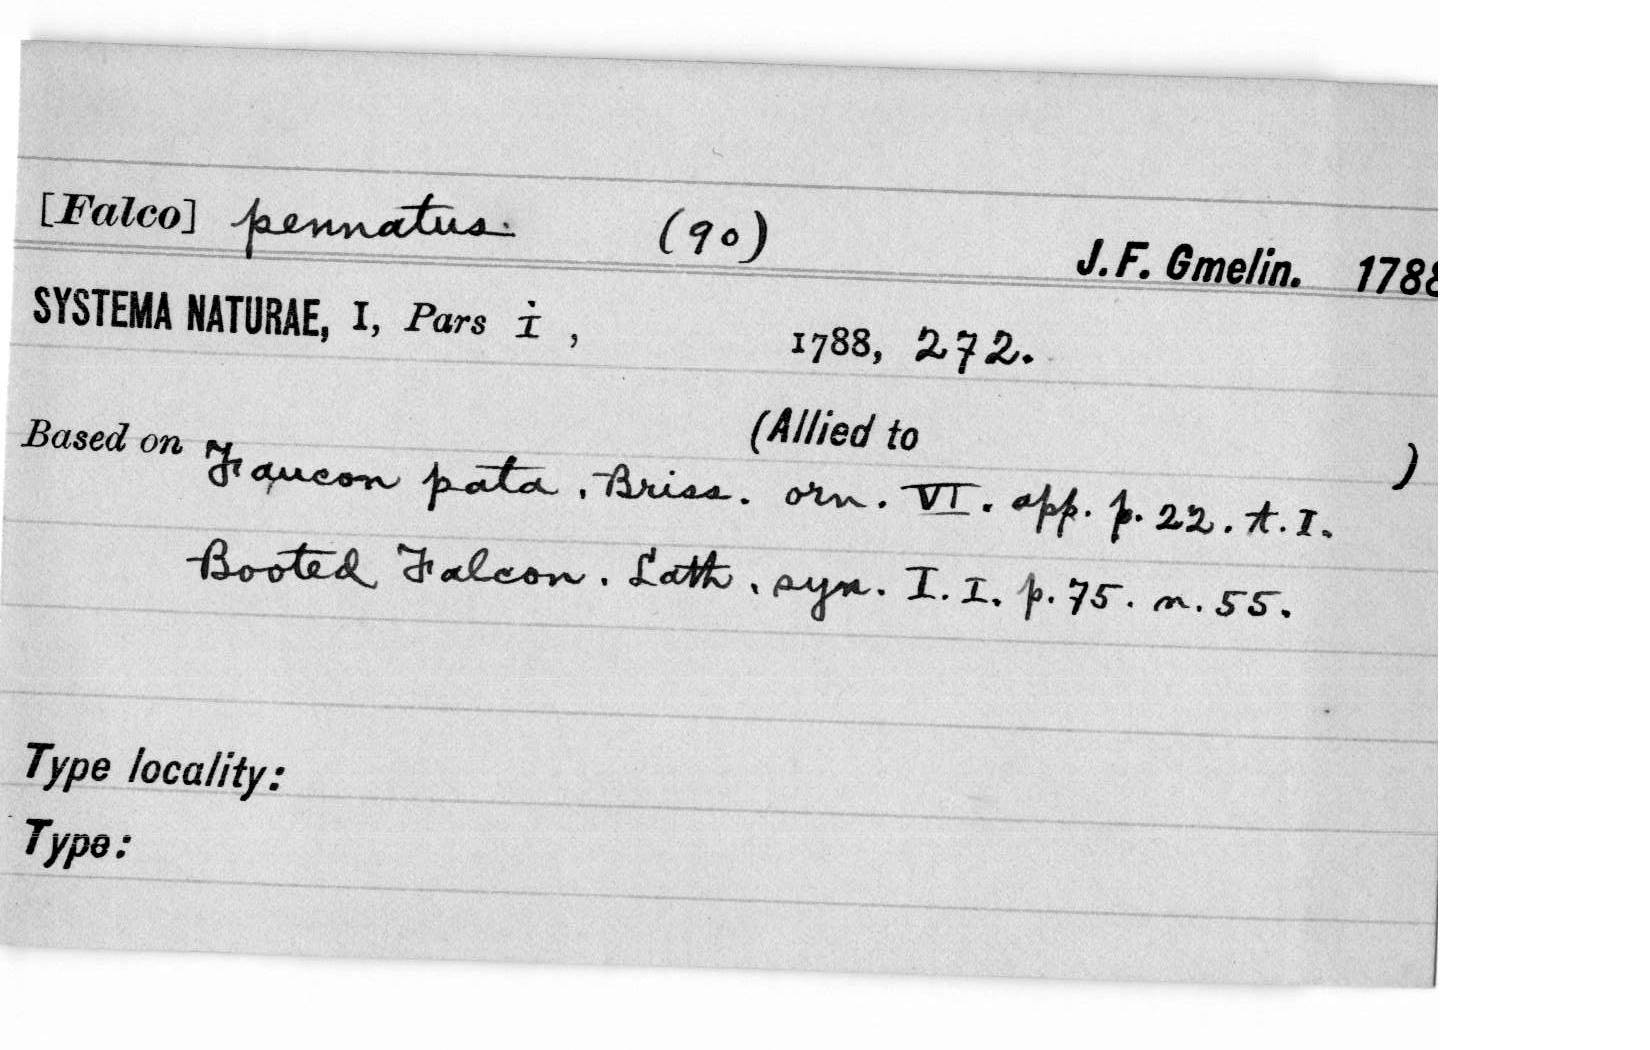 [Falco] pennatus. (90)
J. F. Gmelin. 1788
SYSTEMA NATURAE, I, Pars i, 1788, 272.
(Allied to )
Based on Faucon pata. Briss. orn. VI. app. p. 22. t. I.
Booted Falcon. Lath. syn. I. I. p. 75. n. 55.
Type locality:
Type: